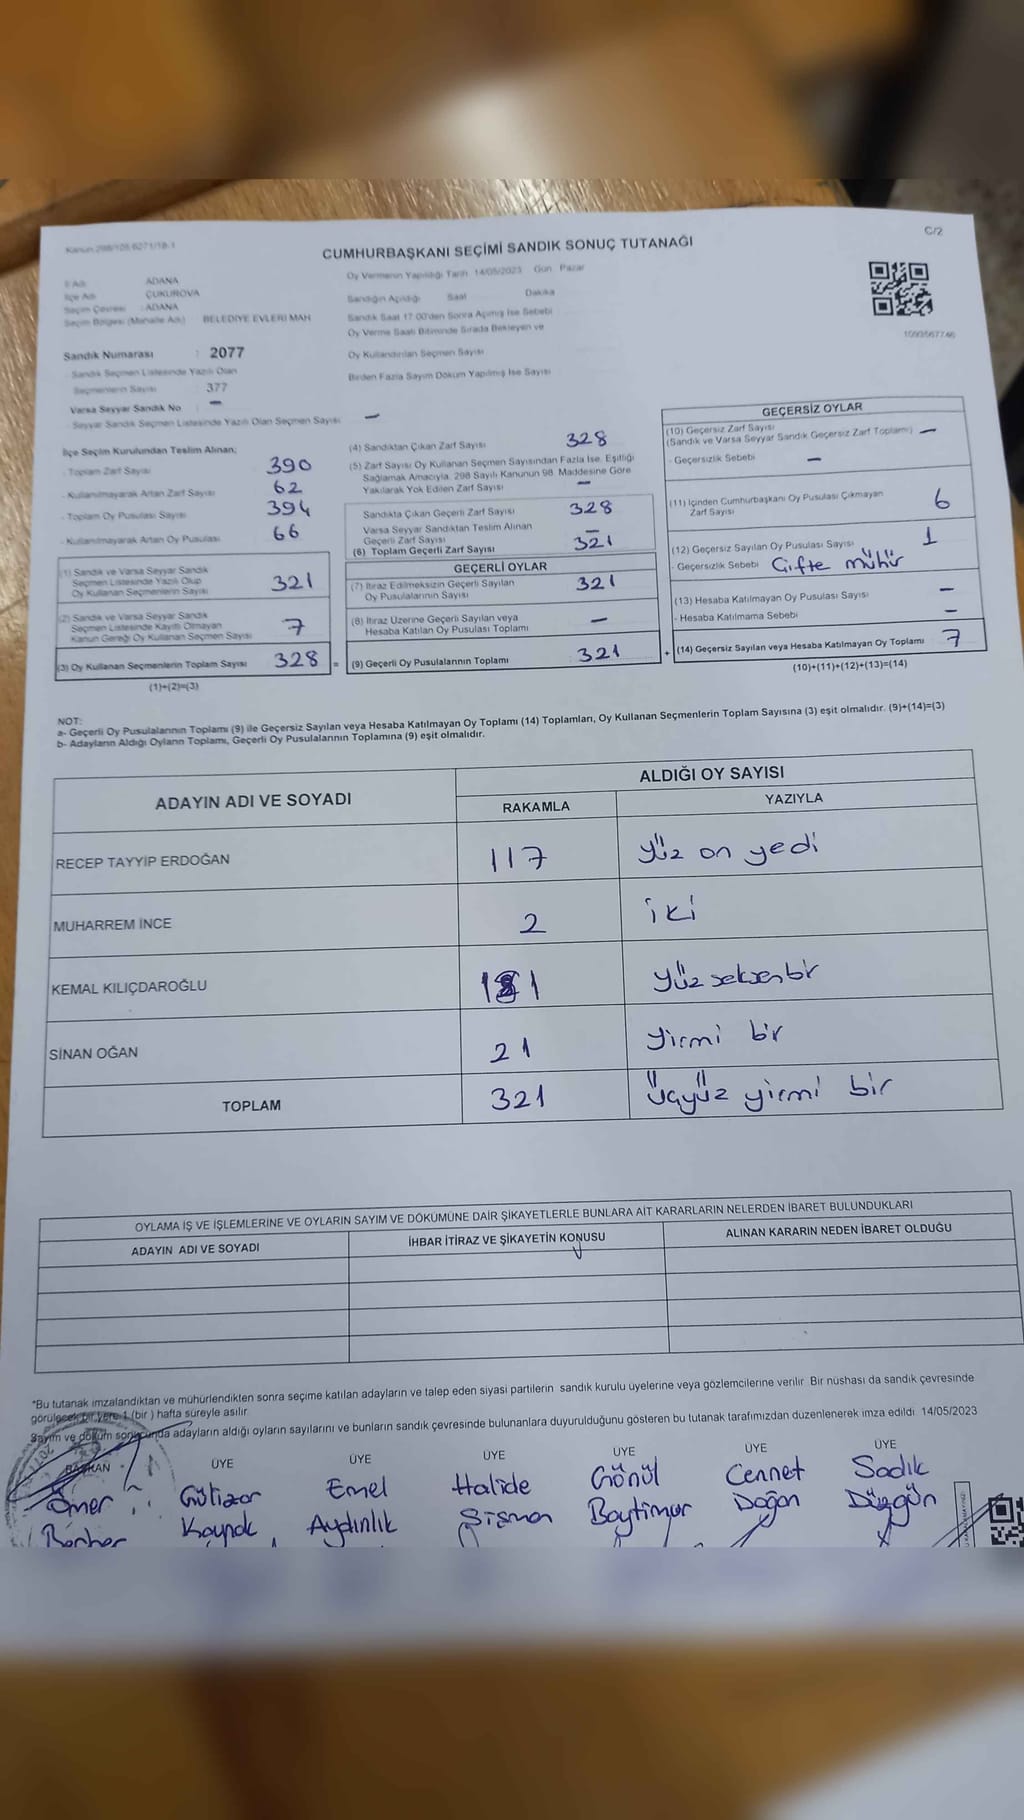 Kanun 298/105,6271/18-1
C/2
CUMHURBAŞKANI SEÇİMİ SANDIK SONUÇ TUTANAĞI
İl Adı ADANA
İlçe Adı ÇUKUROVA
Seçim Çevresi : ADANA
Seçim Bölgesi (Mahalle Adı) BELEDİYE EVLERİ MAH
Sandık Numarası : 2077
- Sandık Seçmen Listesinde Yazılı Olan
Seçmenlerin Sayısı : 377
Varsa Seyyar Sandık No : –
- Seyyar Sandık Seçmen Listesinde Yazılı Olan Seçmen Sayısı –
Oy Vermenin Yapıldığı Tarih 14/05/2023 Gün Pazar
Sandığın Açıldığı Saat Dakika
Sandık Saat 17.00'den Sonra Açılmış İse Sebebi
Oy Verme Saati Bitiminde Sırada Bekleyen ve
Oy Kullandırılan Seçmen Sayısı
Birden Fazla Sayım Döküm Yapılmış İse Sayısı
1093567746
İlçe Seçim Kurulundan Teslim Alınan;
- Toplam Zarf Sayısı 390
- Kullanılmayarak Artan Zarf Sayısı 62
- Toplam Oy Pusulası Sayısı 394
- Kullanılmayarak Artan Oy Pusulası 66
(1) Sandık ve Varsa Seyyar Sandık
Seçmen Listesinde Yazılı Olup
Oy Kullanan Seçmenlerin Sayısı 321
(2) Sandık ve Varsa Seyyar Sandık
Seçmen Listesinde Kayıtlı Olmayan
Kanun Gereği Oy Kullanan Seçmen Sayısı 7
(3) Oy Kullanan Seçmenlerin Toplam Sayısı 328 =
(1)+(2)=(3)
(4) Sandıktan Çıkan Zarf Sayısı 328
(5) Zarf Sayısı Oy Kullanan Seçmen Sayısından Fazla İse, Eşitliği
Sağlamak Amacıyla, 298 Sayılı Kanunun 98. Maddesine Göre
Yakılarak Yok Edilen Zarf Sayısı –
Sandıkta Çıkan Geçerli Zarf Sayısı 328
Varsa Seyyar Sandıktan Teslim Alınan
Geçerli Zarf Sayısı –
(6) Toplam Geçerli Zarf Sayısı 321
GEÇERLİ OYLAR
(7) İtiraz Edilmeksizin Geçerli Sayılan
Oy Pusulalarının Sayısı 321
(8) İtiraz Üzerine Geçerli Sayılan veya
Hesaba Katılan Oy Pusulaları Toplamı –
(9) Geçerli Oy Pusulalarının Toplamı 321 +
GEÇERSİZ OYLAR
(10) Geçersiz Zarf Sayısı
(Sandık ve Varsa Seyyar Sandık Geçersiz Zarf Toplamı) –
- Geçersizlik Sebebi –
(11) İçinden Cumhurbaşkanı Oy Pusulası Çıkmayan
Zarf Sayısı 6
(12) Geçersiz Sayılan Oy Pusulası Sayısı 1
- Geçersizlik Sebebi Çifte mühür
(13) Hesaba Katılmayan Oy Pusulası Sayısı –
- Hesaba Katılmama Sebebi –
(14) Geçersiz Sayılan veya Hesaba Katılmayan Oy Toplamı 7
(10)+(11)+(12)+(13)=(14)
NOT:
a- Geçerli Oy Pusulalarının Toplamı (9) ile Geçersiz Sayılan veya Hesaba Katılmayan Oy Toplamı (14) Toplamları, Oy Kullanan Seçmenlerin Toplam Sayısına (3) eşit olmalıdır. (9)+(14)=(3)
b- Adayların Aldığı Oyların Toplamı, Geçerli Oy Pusulalarının Toplamına (9) eşit olmalıdır.
ADAYIN ADI VE SOYADI
ALDIĞI OY SAYISI
RAKAMLA YAZIYLA
RECEP TAYYİP ERDOĞAN 117 yüz on yedi
MUHARREM İNCE 2 iki
KEMAL KILIÇDAROĞLU 181 yüz seksen bir
SİNAN OĞAN 21 yirmi bir
TOPLAM 321 üçyüz yirmi bir
OYLAMA İŞ VE İŞLEMLERİNE VE OYLARIN SAYIM VE DÖKÜMÜNE DAİR ŞİKAYETLERLE BUNLARA AİT KARARLARIN NELERDEN İBARET BULUNDUKLARI
ADAYIN ADI VE SOYADI İHBAR İTİRAZ VE ŞİKAYETİN KONUSU ALINAN KARARIN NEDEN İBARET OLDUĞU
*Bu tutanak imzalandıktan ve mühürlendikten sonra seçime katılan adayların ve talep eden siyasi partilerin sandık kurulu üyelerine veya gözlemcilerine verilir. Bir nüshası da sandık çevresinde
görülecek bir yere 1 (bir) hafta süreyle asılır.
Sayım ve döküm sonucunda adayların aldığı oyların sayılarını ve bunların sandık çevresinde bulunanlara duyurulduğunu gösteren bu tutanak tarafımızdan düzenlenerek imza edildi. 14/05/2023
BAŞKAN ÜYE ÜYE ÜYE ÜYE ÜYE ÜYE
Ömer Gülizar Emel Halide Gönül Cennet Sadık
Kaynak Aydınlık Şişman Baytimur Doğan Düzgün